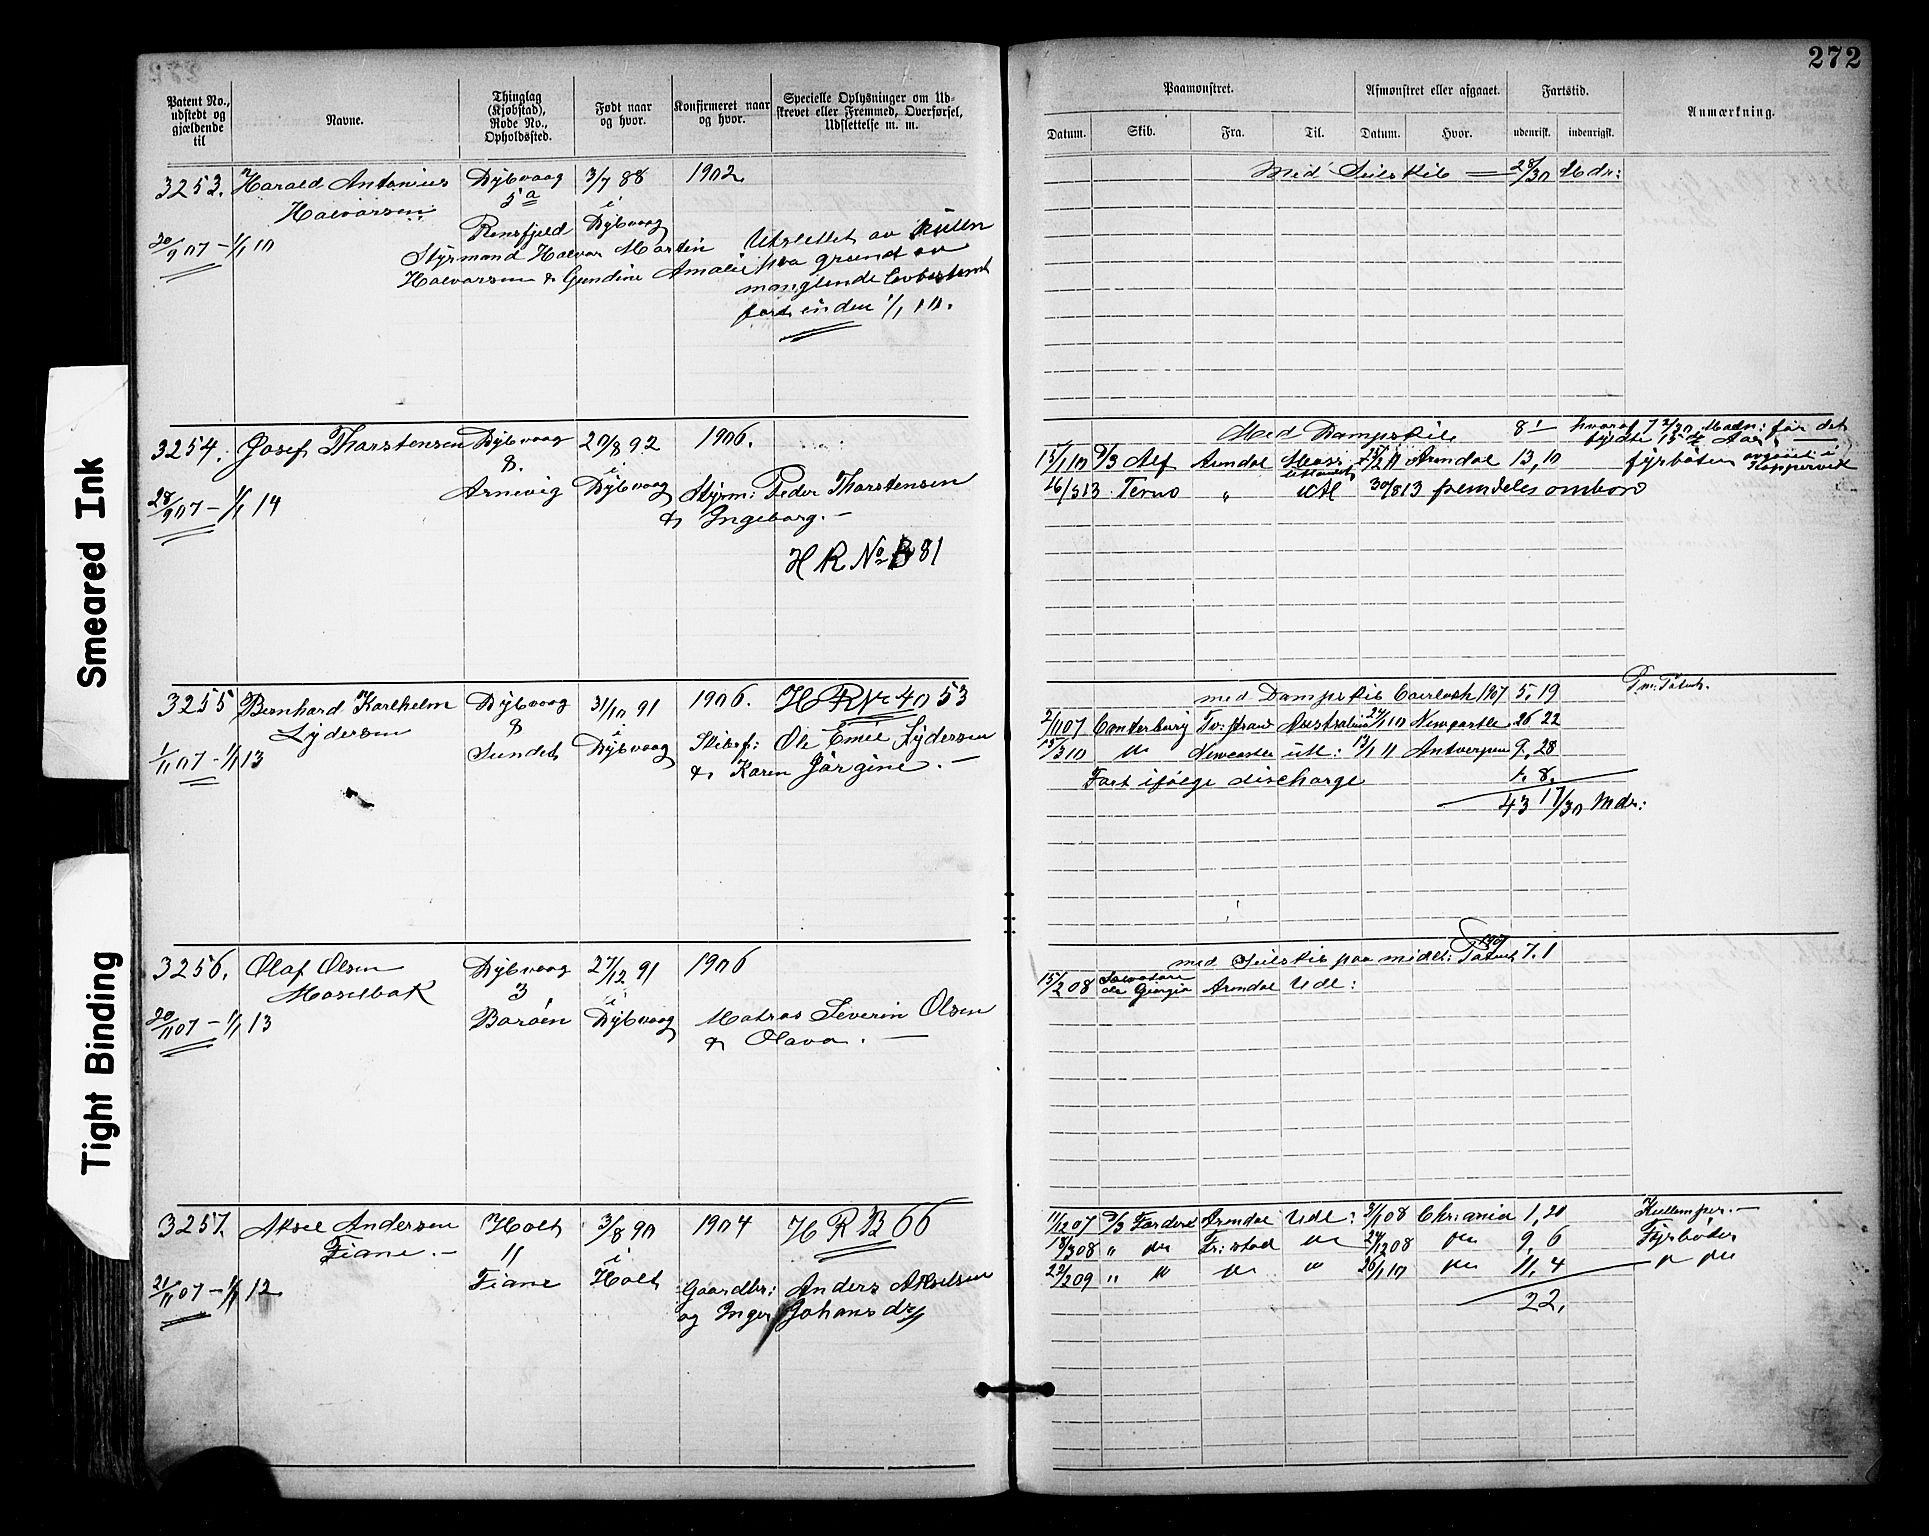 272
Patent No., udstedt og gjældende til
Navne.
Thinglag (Kjøbstad), Rode No., Opholdssted.
Født naar og hvor.
Konfirmeret naar og hvor.
Specielle Oplysninger om Udskrevet eller Fremmed, Overførsel, Udslettelse m. m.
Paamønstret.
Afmønstret eller afgaaet.
Fartstid.
Anmærkning.
Datum.
Skib.
Fra.
Til.
Datum.
Hvor.
udenrigsk.
indenrigsk.
3253. Harald Antonius Dybvaag 3/7 88 1902
Halvorsen 5a i
Rensfjeld Dybvaag
30/9 07 - 1/1 10 Styrmand Halvor Martin
Halvorsen & Gundine Amalie
Utslettet av rullen
paa grund av
manglende lovbestemt
fart inden 1/1 10.
Med Seilskib 28/30 Mdr:
3254. Josef Thorstensen Dybvaag 20/8 92 1906.
8. i
Arnevig Dybvaag Styrm: Peder Thorstensen
28/9 07 - 1/1 14 & Ingeborg.
H R No B 81
Med Dampskib 8 1 hvoraf 7 2/30 Mdr: før det
fyldte 15de Aar
15/1 10 D/S Alf Arendal Moss 15/2 11 Arendal 13,10 fyrbøter avgaaet i
Koppervik
16/5 13 Terno " Utl 30/8 13 fremdeles ombord
3255 Bernhard Karlhelm Dybvaag 31/10 91 1906. H R No 4053
Lydersen 8 i
1/11 07 - 1/1 13 Sundet Dybvaag Skibsf: Ole Emil Lydersen
& Karen Jørgine.
med Dampskib 1907 5,19
2/11 07 Canterbury Australia 24/1 10 Newcastle 26 22
15/3 10 " Newcastle Utl: 13/1 11 Antwerpen 9. 28
Fart ifølge discharge 1. 8.
43 17/30 Mdr:
3256. Olaf Olsen Dybvaag 27/12 91 1906
Moselbak 3 i
20/11 07 - 1/1 13 Borøen Dybvaag Matros Severin Olsen
& Olava.
med Seilskib paa midl: Patent 1907 7. 1
15/2 08 Salvatore
Giorgio Arendal Udl:
3257. Aksel Andersen Holt 3/8 90 1904 H R B 66
Fiane. 11 i
21/11 07 - 1/1 12 Fiane Holt Gaardbr: Anders Akselsen
og Inger Johansdr
11/12 07 D/S Farderø Arendal Udl: 3/1 08 Chriania 1,20 Kullemper.
18/3 08 " do Fr:stad do 24/12 08 do 9, 6 Fyrbøter
22/2 09 " " do " 26/1 10 do 11, 4 " do
22,
Smeared Ink
Tight Binding